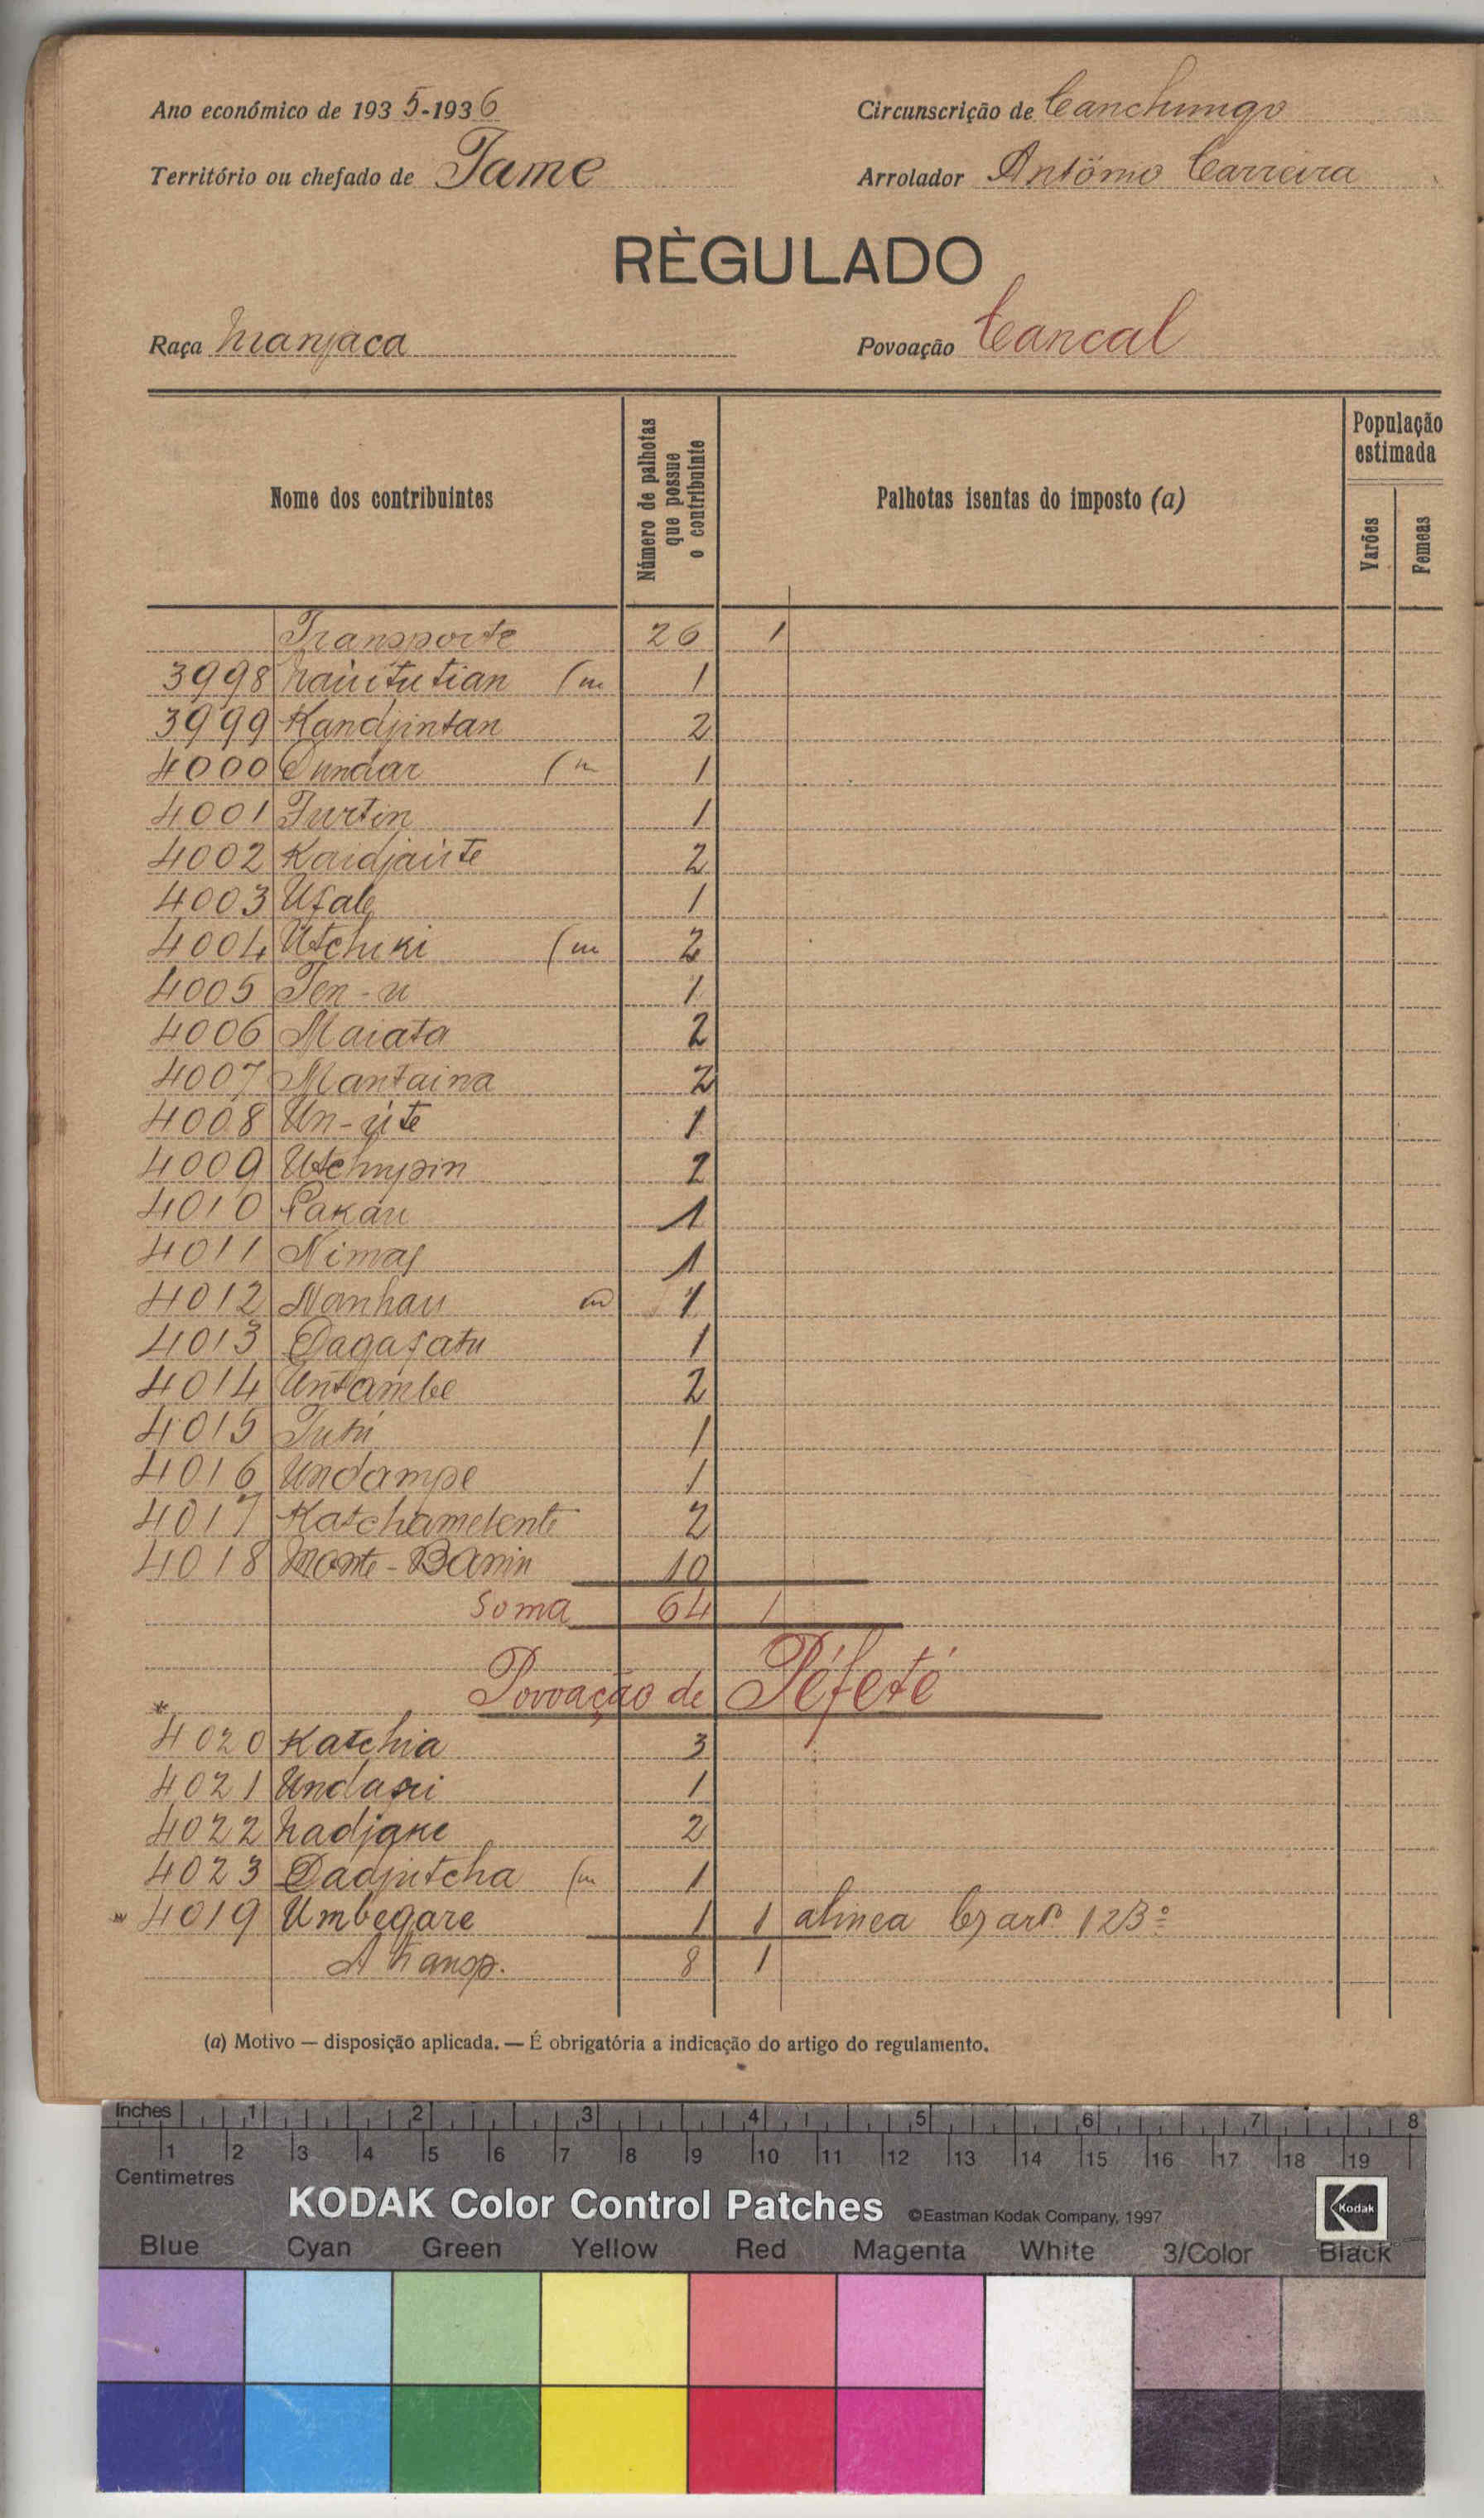 Ano económico de 1935-1936 Circunscrição de Canchungo
Território ou chefado de Tame Arrolador António Carreira
RÈGULADO
Raça Manjaca Povoação Cancal
Nome dos contribuintes
Número de palhotas que possue o contribuinte
Palhotas isentas do imposto (a)
População estimada
Varões
Femeas
Transporte 26 1
3998 Naiutu tian (m 1
3999 Kandjintan 2
4000 Dundar (m 1
4001 Turtin 1
4002 Kaidjaúte 2
4003 Ufale 1
4004 Utchiki (m 2
4005 Ten-u 1
4006 Maiata 2
4007 Mantaina 2
4008 Un-úte 1
4009 2
4010 Pakau 1
4011 Nimaf 1
4012 Nanhau m 1
4013 Dagafatu 1
4014 Untambe 2
4015 Tutú 1
4016 Undampe 1
4017 Katchamelente 2
4018 Monte-Banin 10
Soma 64 1
Povoação de Péfeté
*
4020 Katchia 3
4021 1
4022 Nadjake 2
4023 Dadjutcha (m 1
* 4019 Umbegare 1 1 alinea b) artº 123º
A transp. 8 1
(a) Motivo — disposição aplicada. — É obrigatória a indicação do artigo do regulamento.
Inches 1 2 3 4 5 6 7 8
1 2 3 4 5 6 7 8 9 10 11 12 13 14 15 16 17 18 19
Centimetres
KODAK Color Control Patches ©Eastman Kodak Company, 1997 Kodak
Blue Cyan Green Yellow Red Magenta White 3/Color Black